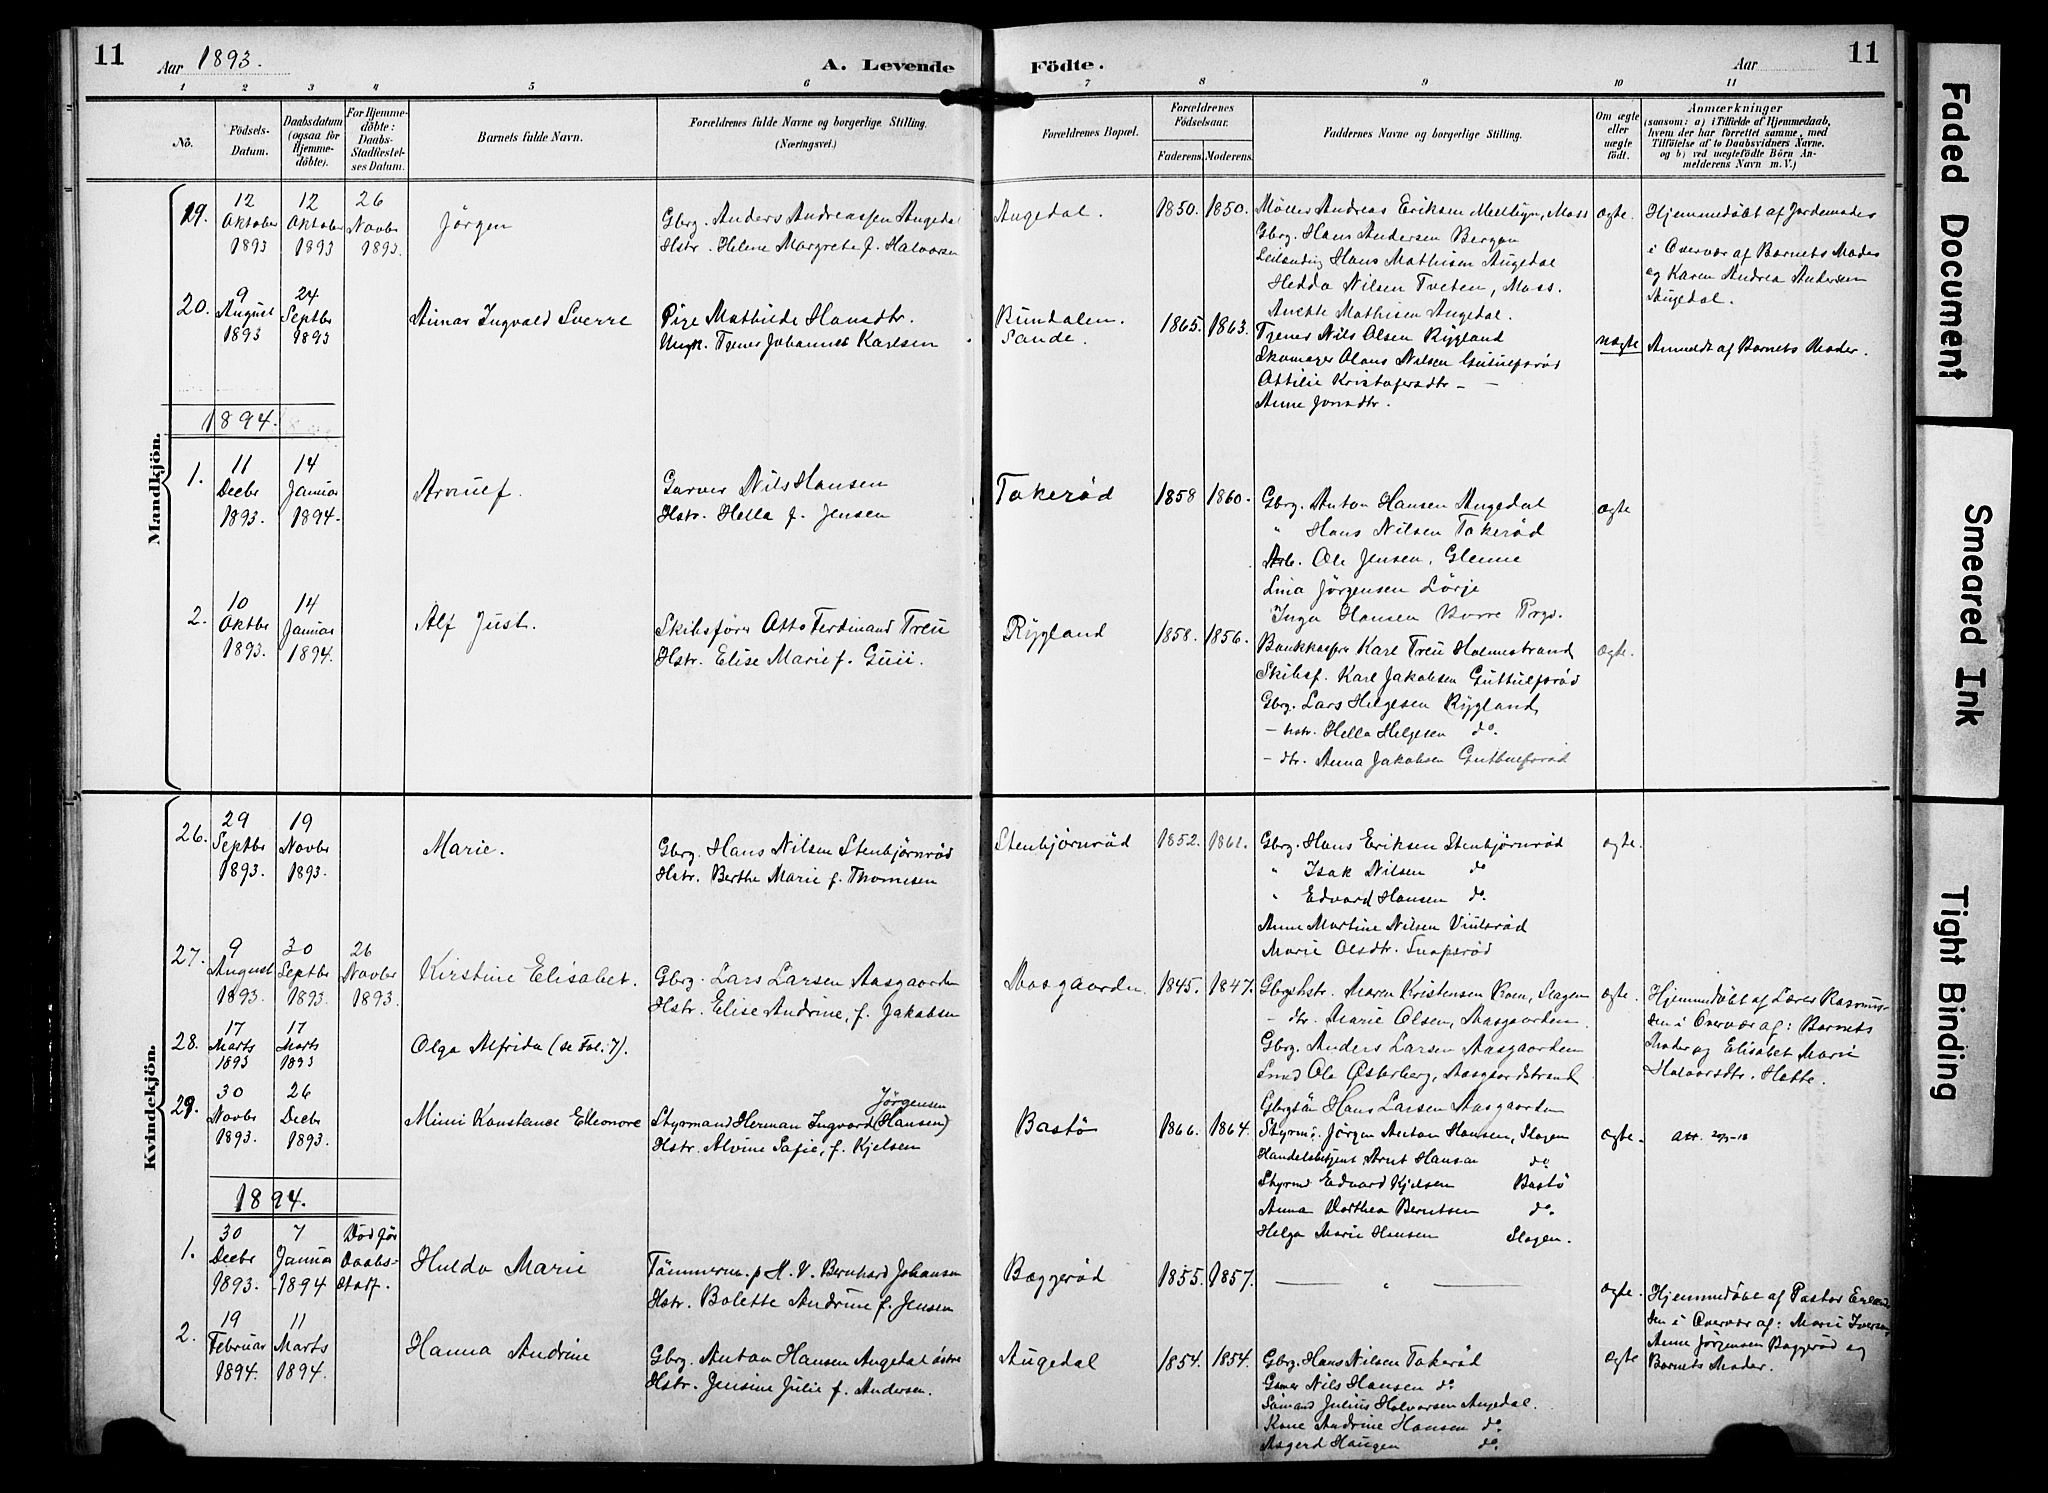 11
Aar 1893.
A. Levende
Födte.
Aar
11
1 2 3 4 5 6 7 8 9 10 11
No.
Födsels-
Datum.
Daabsdatum
(ogsaa for
Hjemme-
döbte).
For Hjemme-
döbte:
Daabs-
Stadfæstel-
ses Datum.
Barnets fulde Navn.
Forældrenes fulde Navne og borgerlige Stilling.
(Næringsvei.)
Forældrenes Bopæl.
Forældrenes
Födselsaar.
Faderens. Moderens.
Faddernes Navne og borgerlige Stilling.
Om ægte
eller
uægte
födt.
Anmærkninger
(saasom: a) i Tilfælde af Hjemmedaab,
hvem der har forrettet samme, med
Tilföielse af to Daabsvidners Navne,
og b) ved uægtefödte Börn An-
melderens Navn m. V.)
Mandkjön.
19.
12
Oktober
1893
12
Oktober
1893
26
Novbr
1893.
Jörgen
Gbrg. Anders Andreassen Augedal
Hstr. Helene Margrete f. Halvorsen
Augedal.
1850. 1850.
Möller Andreas Eriksen Mellegn, Moss
Gbrg. Hans Andersen Bergan
Leilending Hans Mathisen Augedal
Hedda Nilsen Tveten, Moss.
Anette Mathisen Augedal.
ægte.
Hjemmedöbt af Jordemoder
i Overvær af Barnets Moder
og Karen Andrea Andersen
Augedal.
20.
9
August
1893
24
Septbr
1893
Aimar Ingvald Sverre
Pige Mathilde Hansdtr.
Ungk. Tjener Johannes Karlsen
Rundalen.
Sande.
1865. 1863.
Tjener Nils Olsen Rygland
Skomager Olaus Nilsen Gutulfsröd
Attilie Kristofersdtr — —
Anne Jonsdtr.
uægte
Anmeldt af Barnets Moder.
1894.
1.
11
Decbr
1893.
14
Januar
1894.
Arnulf.
Garver Nils Hansen
Hstr. Hella f. Jensen
Takeröd
1858 1860.
Gbrg. Anton Hansen Augedal
" Hans Nilsen Takeröd
Arb. Ole Jensen, Glenne
Lina Jörgensen Lörje
Inga Hansen Borre Prgd.
ægte
2.
10
Oktbr
1893.
14
Januar
1894.
Alf Just.
Skibsförer Otto Ferdinand Treu
Hstr. Elise Marie f. Guii.
Rygland
1858. 1856.
Bankkasser Karl Treu Holmestrand
Skibsf. Karl Jakobsen Guttulfsröd
Gbrg. Lars Helgesen Rygland
— hstr. Hella Helgesen do.
— dtr. Anna Jakobsen Guttulfsröd
ægte.
Kvindekjön.
26.
29
Septbr
1893.
19
Novbr
1893.
Marie.
Gbrg. Hans Nilsen Stenbjörnröd
Hstr. Berthe Marie f. Thomesen
Stenbjörnröd
1852. 1861.
Gbrg. Hans Eriksen Stenbjörnröd
" Isak Nilsen do
" Edvard Hansen do.
Anne Martine Nilsen Viulsröd
Marie Olsdtr. Snapsröd
ægte.
27.
9
August
1893.
30
Septbr
1893.
26
Novbr
1893.
Kirstine Elisabet.
Gbrg. Lars Larsen Aasgaarden
Hstr. Elise Andrine, f. Jakobsen
Aasgaarden
1845. 1847.
Gbrgshstr. Maren Kristensen Roen, Slagen
— dtr. Marie Olsen, Aasgaarden.
Gbrg. Anders Larsen Aasgaarden
Smed Ole Österberg, Aasgaardstrand
Gbrgsön Hans Larsen Aasgaarden
ægte.
Hjemmedöbt af Lærer Rasmus-
sen i Overvær af: Barnets
Moder og Elisabet Marie
Halvorsdtr. Hotte.
28.
17
Marts
1893
17
Marts
1893
Olga Alfrida (se Fol. 7).
29.
30
Novbr
1893.
26
Decbr
1893.
Mimi Konstance Elleonore
Jörgensen
Styrmand Herman Ingvard (Hansen)
Hstr. Alvine Sofie, f. Kjelsen
Bastö
1866. 1864.
Styrm. Jörgen Anton Hansen, Slagen
Handelsbetjent Arnt Hansen do.
Styrmd Edvard Kjelsen Bastö
Anna Dorthea Berntsen do.
Helga Marie Hansen Slagen.
ægte.
att. 20/5-18
1894.
1.
30
Decbr
1893.
7
Januar
1894
Död för
Daabs-
stadf.
Hulda Marie
Tömmerm. p H. V. Bernhard Johansen
Hstr. Bolette Andrine f. Jensen
Baggeröd
1855. 1857.
— " —
ægte.
Hjemmedöbt af Pastor Erland-
sen i Overvær af: Marie Iversen,
Anne Jörgensen Baggeröd og
Barnets Moder.
2.
19
Februar
1894.
11
Marts
1894.
Hanna Andrine
Gbrg. Anton Hansen Augedal östre
Hstr. Jensine Julie f. Andersen.
Augedal
1854. 1854.
Gbrg. Hans Nilsen Takeröd
Garver Nils Hansen do
Sömand Julius Halvorsen Augedal.
Kone Andrine Hansen do.
Asgerd Haugen do.
ægte
Faded Document
Smeared Ink
Tight Binding